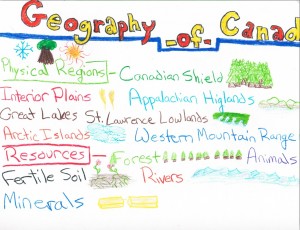 Geography of Canad
Physical Regions - Canadian Shield
Interior Plains Appalachian Higlands
Great Lakes St. Lawrence Lowlands
Arctic Islands Western Mountain Range
Resources - Forest Animals
Fertile Soil Rivers
Minerals